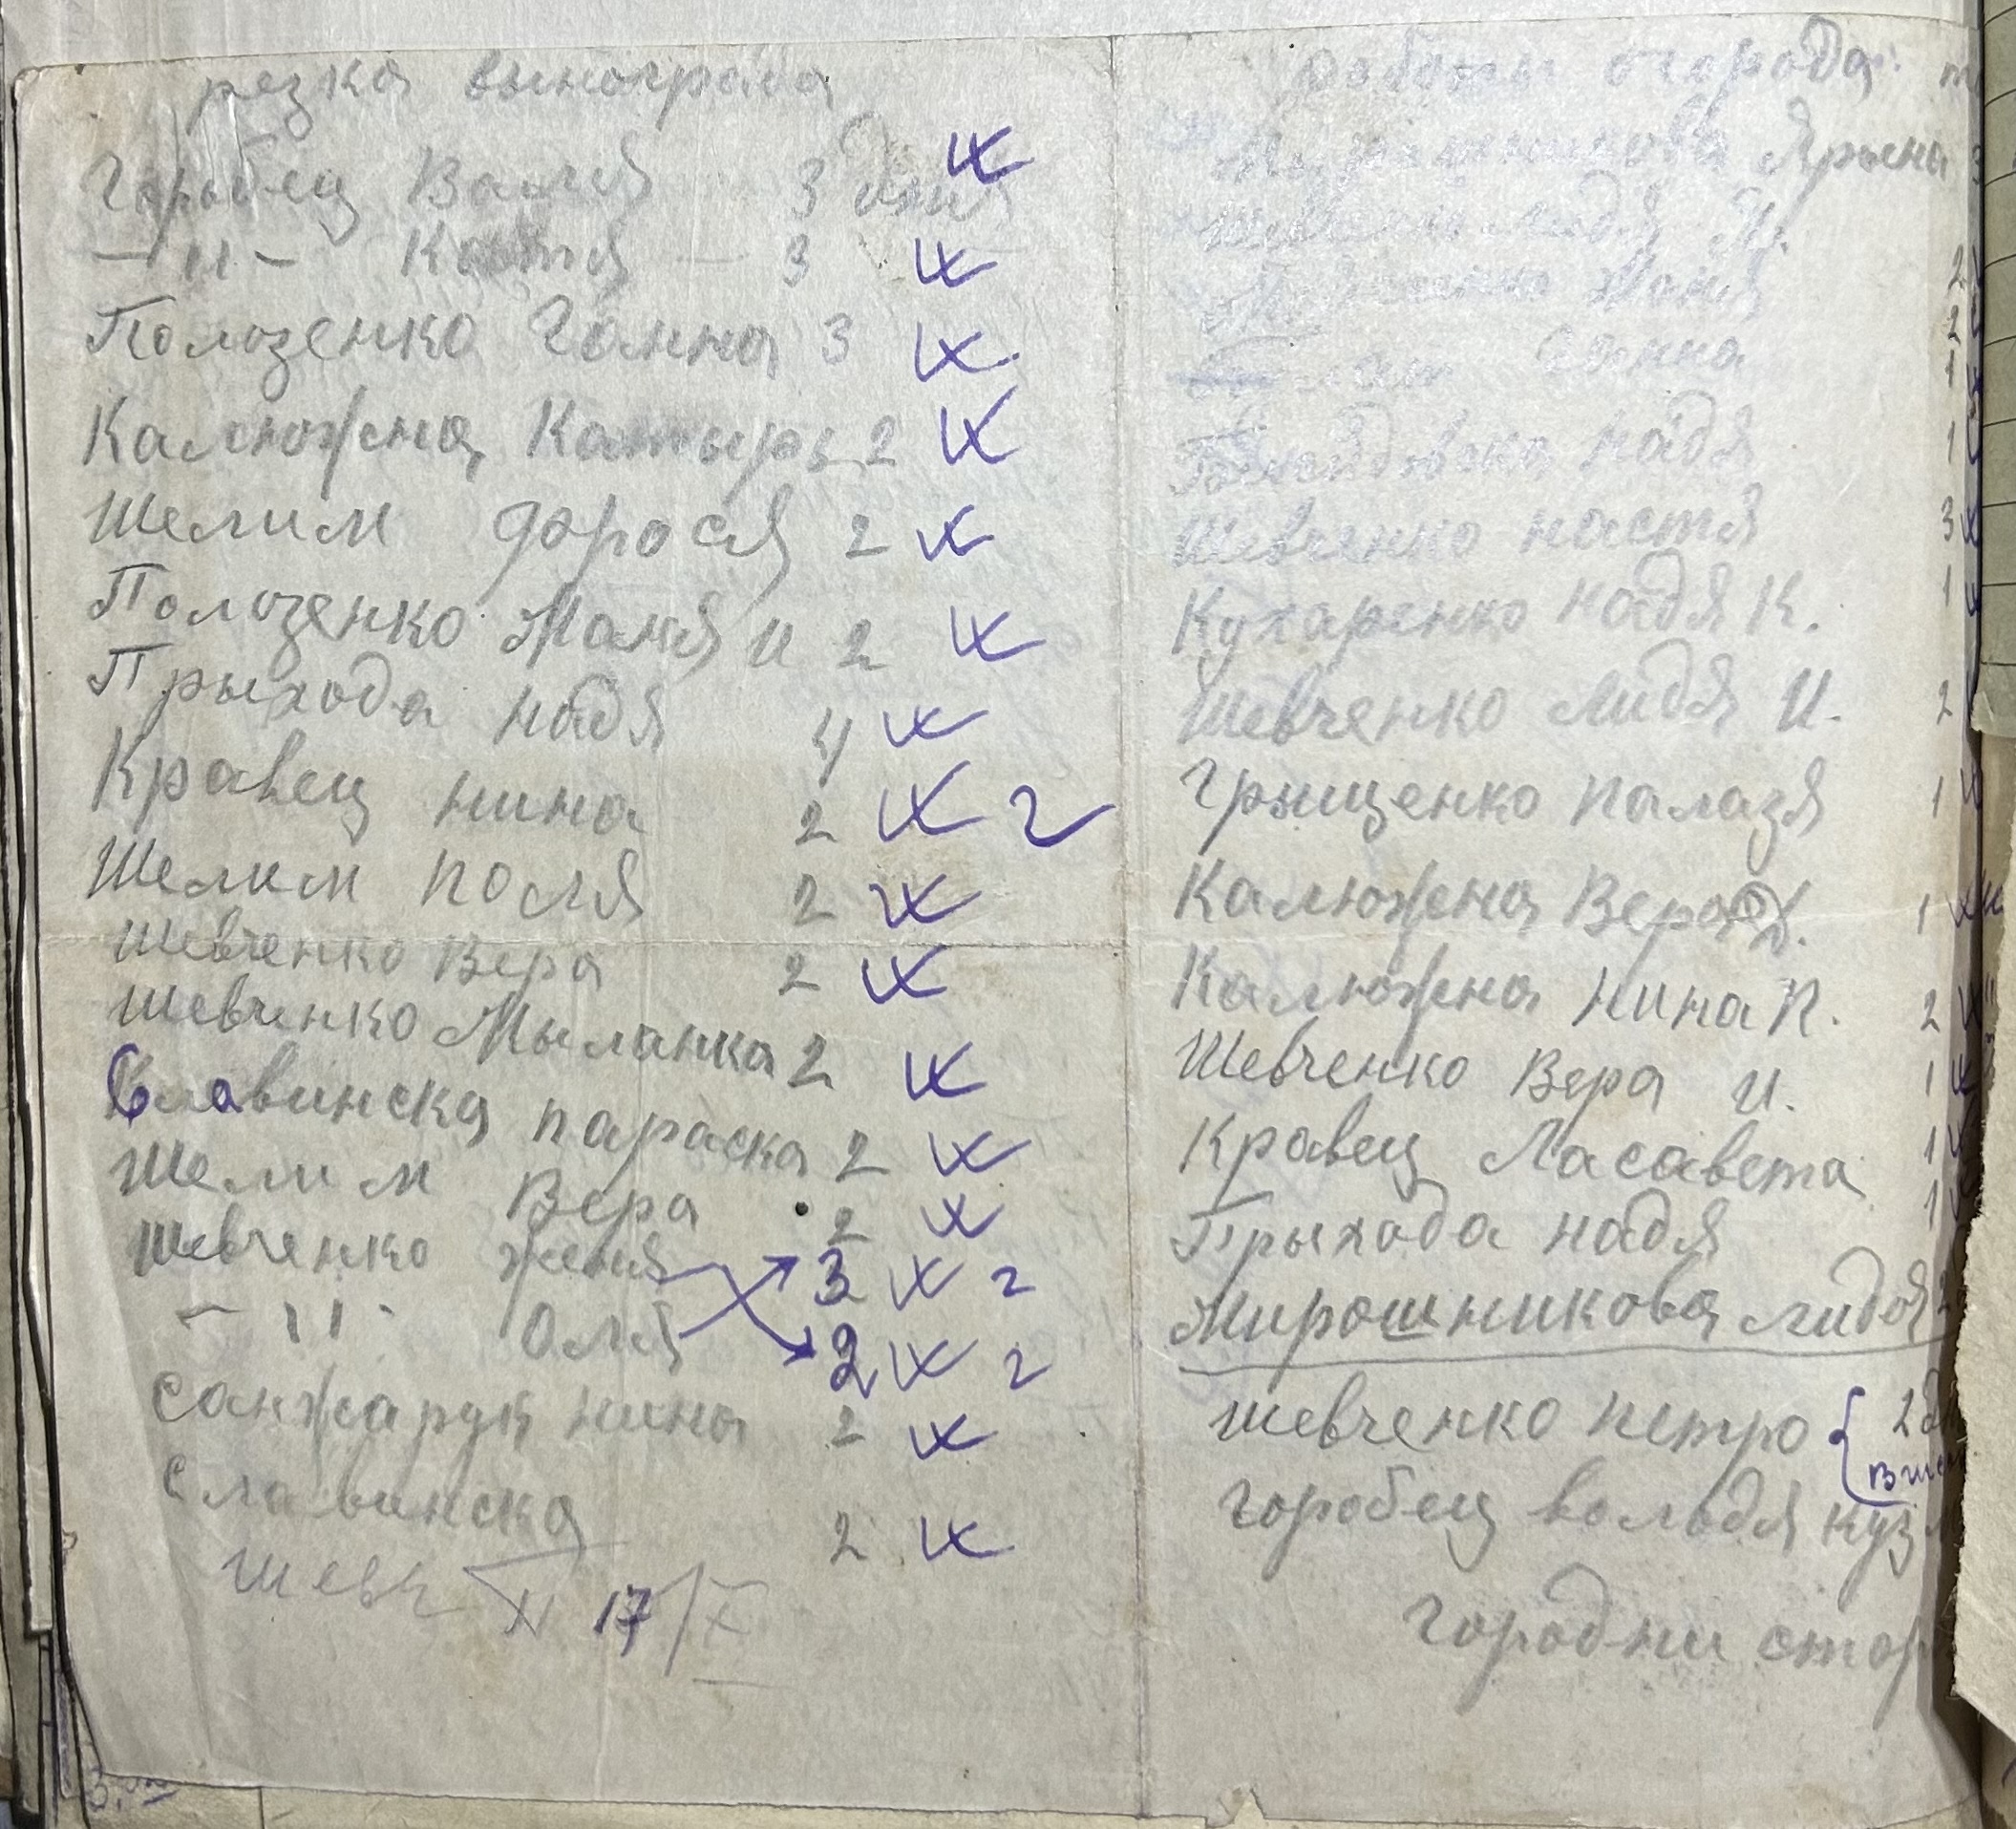 резка вынограда
Горобец Валя - 3 дня
— 11 — Костя — 3
Полозенко Ганна 3
Калюжна Катыры 2
Шелим дорося 2
Полозенко Маня и 2
Прыхода надя 4
Кравец нина 2 2
Шелим поля 2
Шевченко Вера 2
Шевченко Мыланка 2
Славинска параска 2
Шелим Вера 2
Шевченко женя 3 2
— 11 - Оля 2 2
Санжарук нина 2
Славинска 2
Шевч XI 17/X
работы огорода
Ярына
Шевченко лидя И. 2
Маня 2
Ганна 1
надя 1
Шевченко настя 3
Кухаренко надя К. 1
Шевченко лидя И. 2
Грыщенко палазя 1
Калюжна Вера Д. 1
Калюжна нина П. 2
Шевченко Вера и. 1
Кравец Ласавета 1
Прыхода надя 1
Мирошникова лидя
шевченко петро { 2
горобец вольодя куз
городни стор